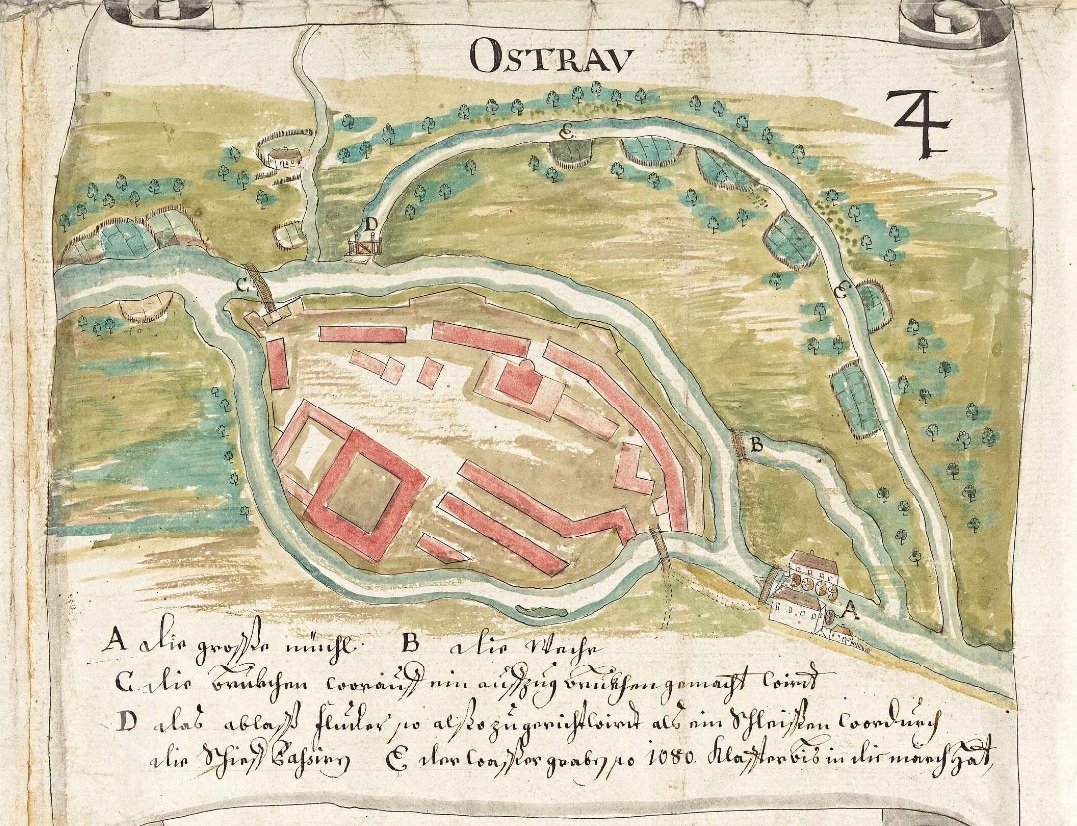 OSTRAV
4
E
D
C
E
B
A
A die grosße mühl B die Wechr
C die brukhen worauß ein aufzug brukhen gemacht wirdt
D das ablaß fluder so alßo zu gericht wirdt als ein Schleißen wordurch
die Schieff Baßirn E der wasßer graben so 1080 Klaffter bis in die march hat